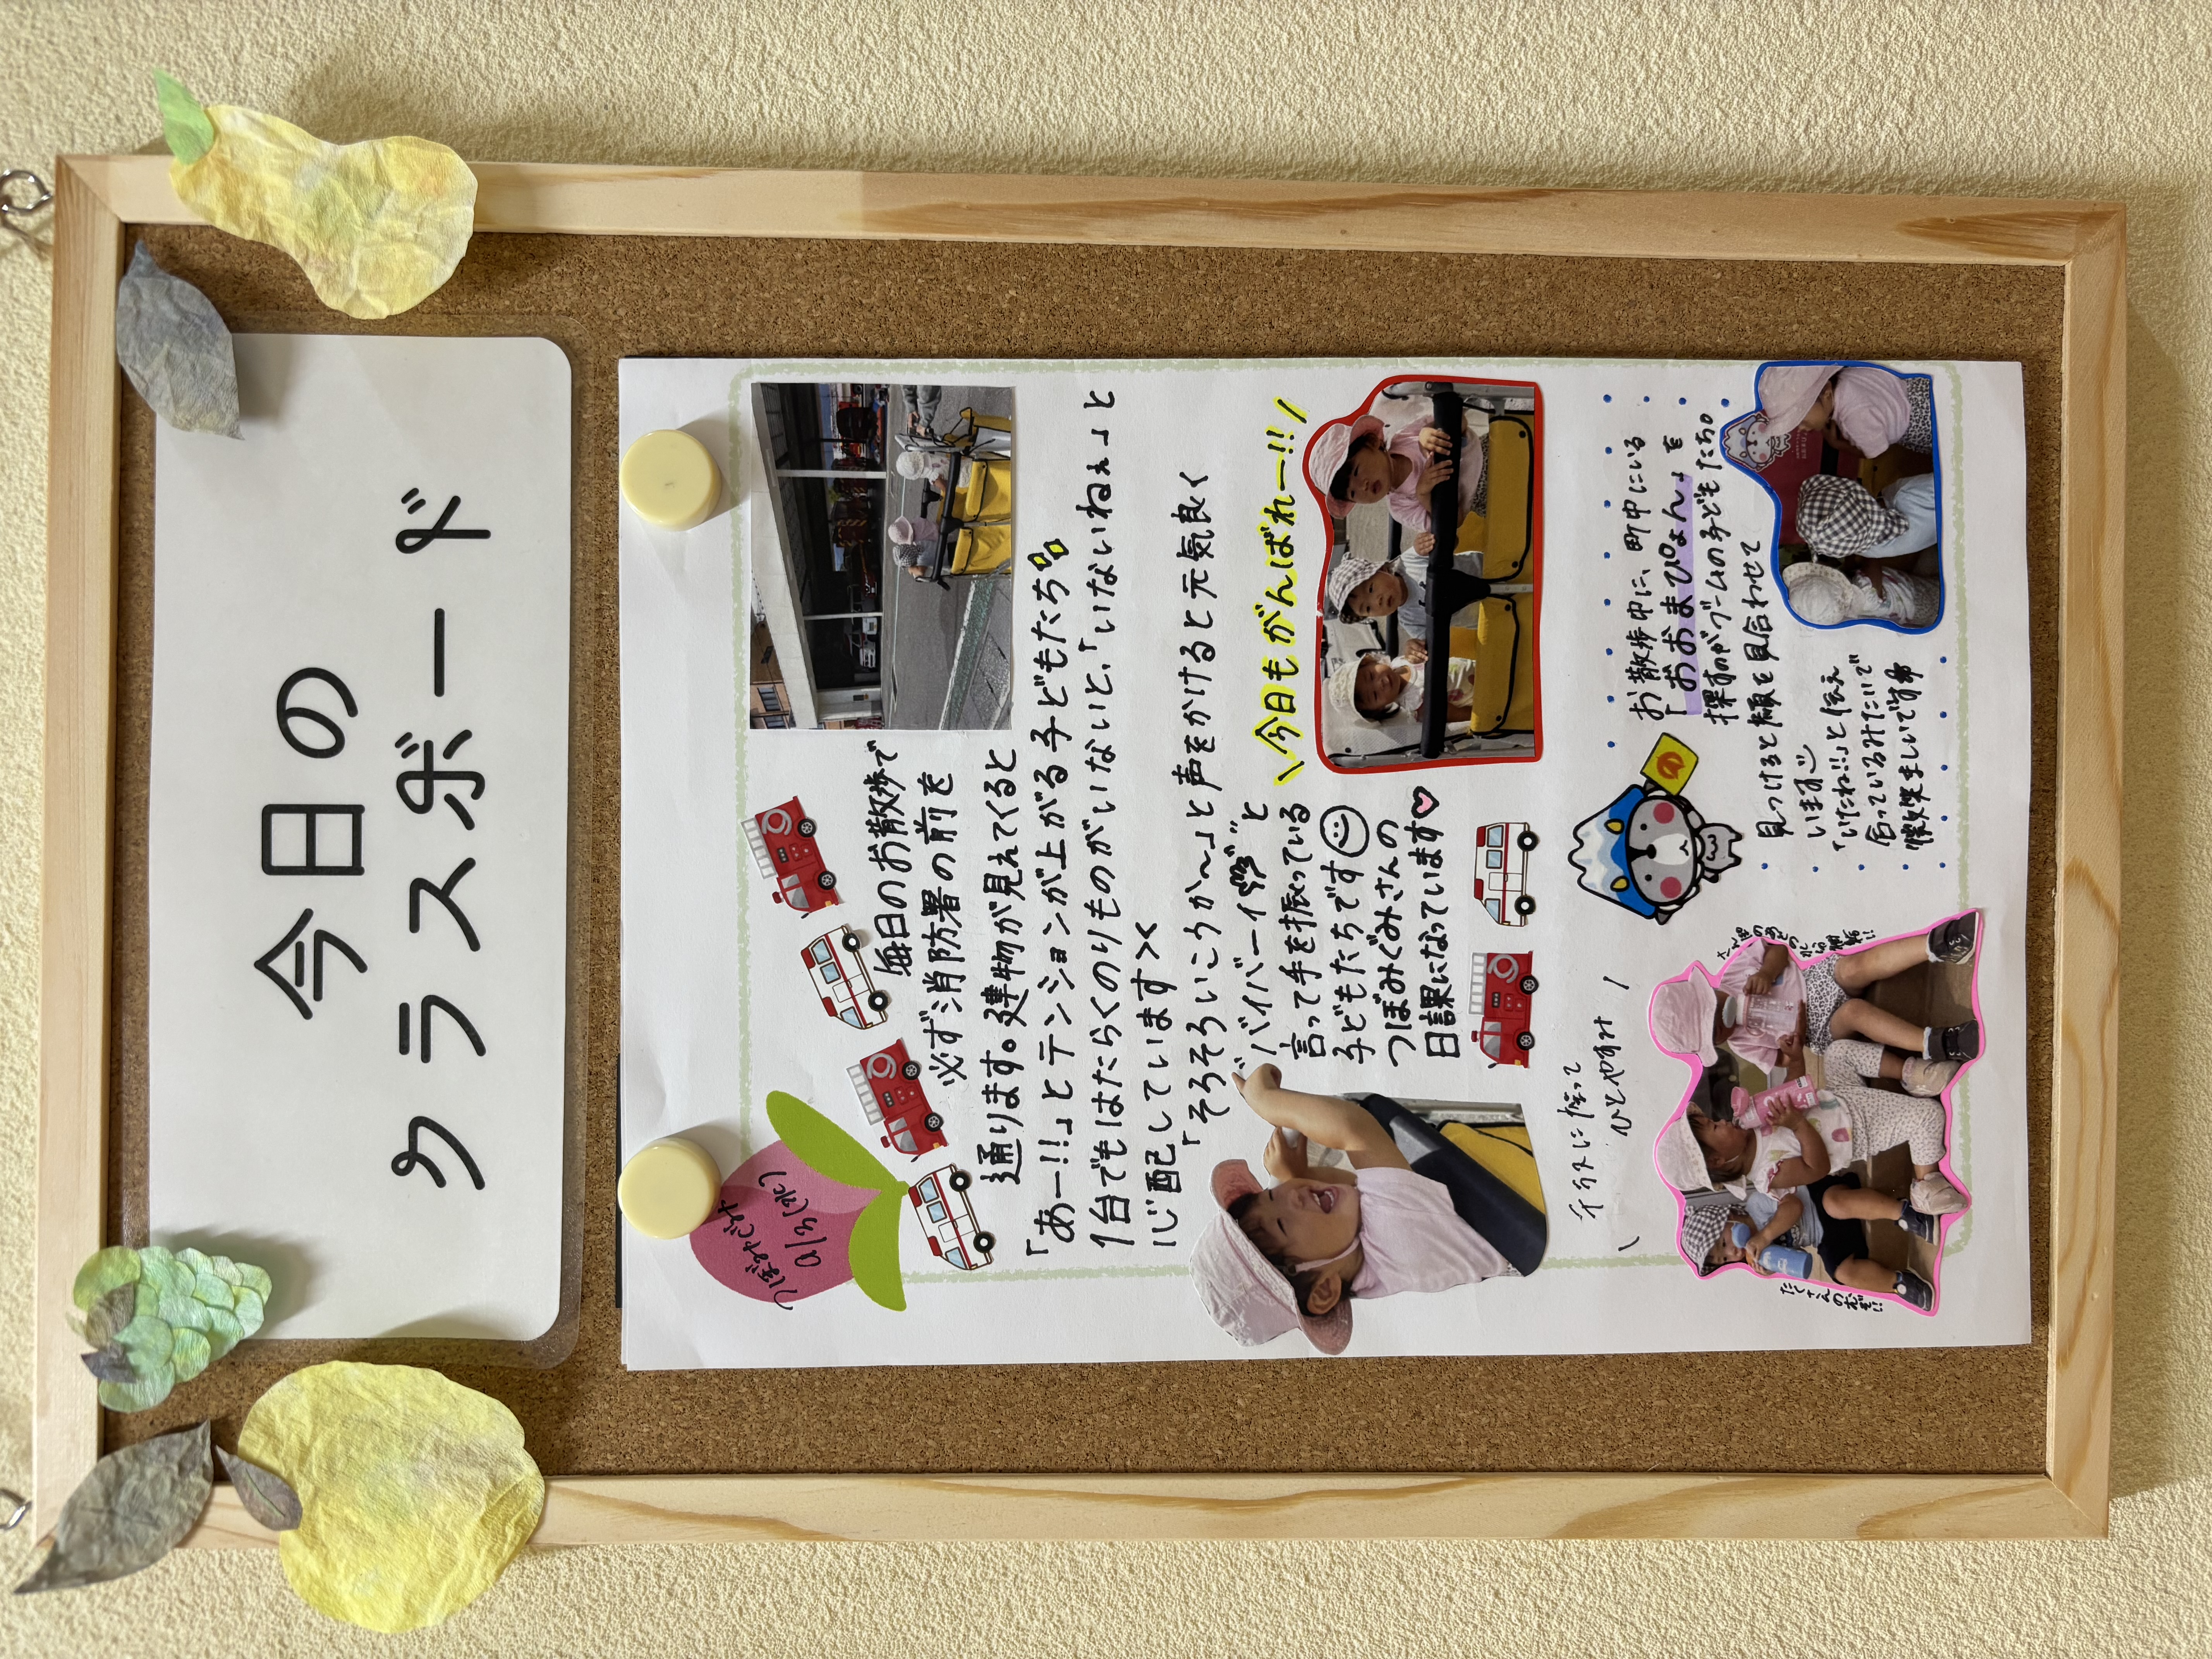 今日の
クラスボード
つぼみぐみ
9/3(水)
毎日のお散歩で
必ず消防署の前を
通ります。建物が見えてくると
「あー!!」とテンションが上がる子どもたち
1台でもはたらくのりものがいないと、「いないいねぇ」と
心配しています><
「そろそろいこうか〜」と声をかけると元気良く
"バイバーイ"と
言って手を振っている
子どもたちです
つぼみぐみさんの
日課になっています
\今日もがんばれー!!/
お散歩中に、町中にいる
「おおまぴょん」を
探すのがブームの子どもたち。
見つけると顔を見合わせて
います
「いたね!!」と伝え
合っているみたいで
微笑ましいです
\イラスに座って
ひとやすみ/